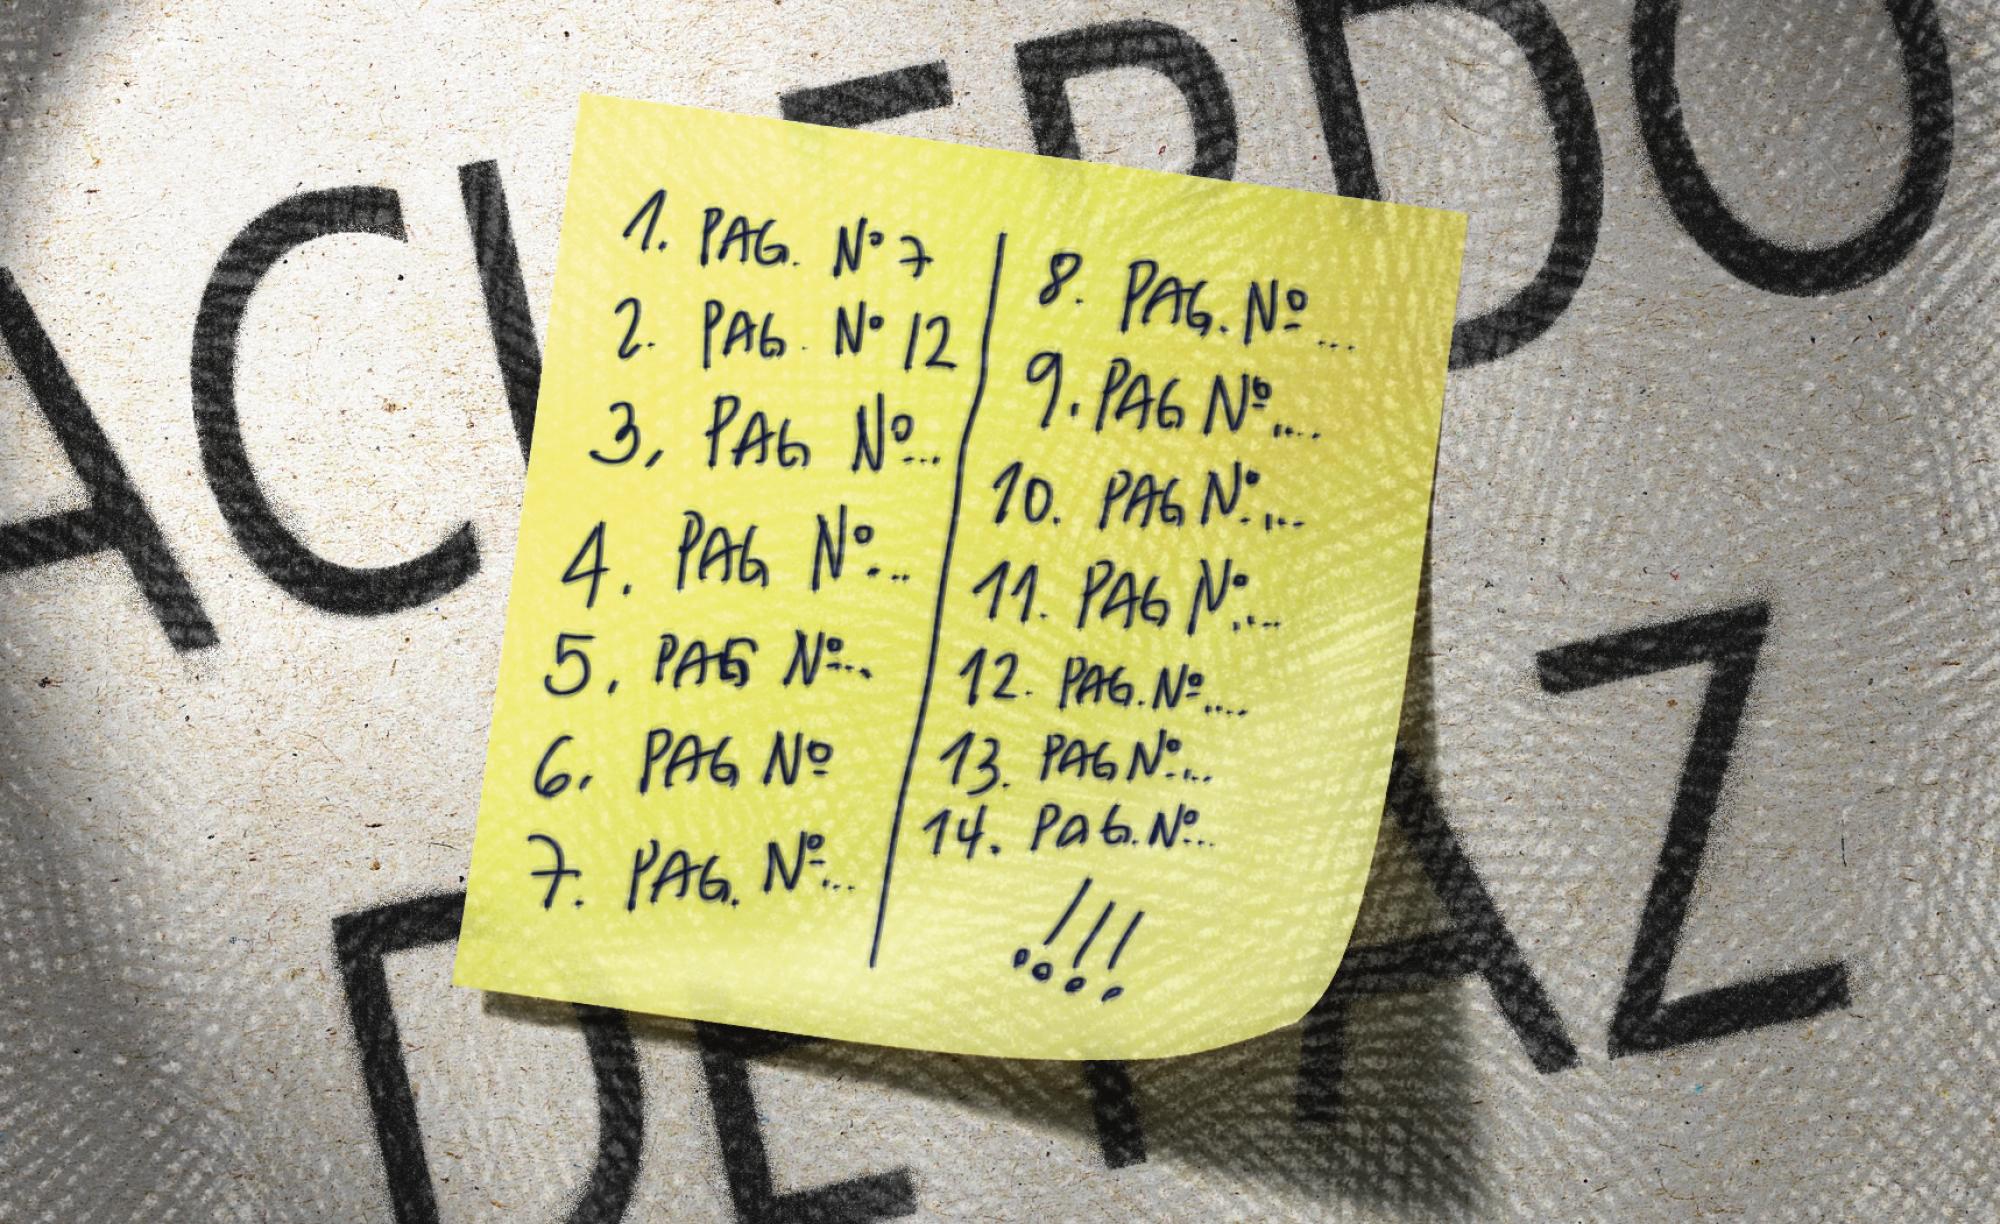 ACUERDO
DE PAZ
1. PAG. Nº 7
2. PAG. Nº 12
3, PAG Nº...
4. PAG Nº...
5, PAG Nº...
6, PAG Nº
7. PAG. Nº...
8. PAG. Nº...
9. PAG Nº....
10. PAG Nº....
11. PAG Nº....
12. PAG. Nº....
13. PAG Nº....
14. PAG. Nº...
!!!